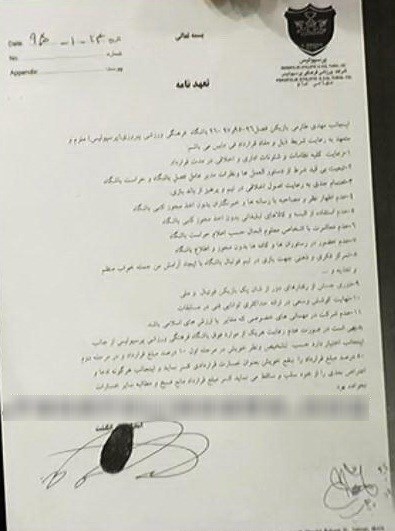 بسمه تعالی
پرسپولیس
Date: ۹۵-۱-۲۳ تاریخ
No. شماره
Appendix: پیوست
تعهد نامه
اینجانب مهدی طارمی بازیکن فصل ۹۶-۹۵ باشگاه فرهنگی ورزشی پیروزی(پرسپولیس) ملزم و
متعهد به رعایت شرایط ذیل و مفاد قرارداد فی مابین می باشم
۱-رعایت کلیه نظامات و شئونات اداری و اخلاقی در مدت قرارداد
۲-تبعیت بی قید شرط از دستور العمل ها ونظرات مدیر عامل فصل باشگاه و حراست باشگاه
۳-اهتمام جدی به رعایت اصول اخلاقی در تیم و پرهیز از باند بازی
۴-عدم اظهار نظر و مصاحبه با رسانه ها و خبرنگاران بدون اخذ مجوز کتبی باشگاه
۵-عدم استفاده از البسه و کالاهای تبلیغاتی بدون اخذ مجوز کتبی باشگاه
۶-عدم معاشرت با اشخاص معلوم الحال حسب اعلام حراست باشگاه
۷-عدم حضور در رستوران ها و کافه ها بدون مجوز و اطلاع باشگاه
۸-تمرکز فکری و ذهنی جهت بازی در تیم فوتبال باشگاه با ایجاد آرامش من جمله خواب منظم
و تغذیه و ...
۹-دوری جستن از رفتارهای دور از شان یک بازیکن فوتبال و ملی
۱۰-نهایت کوشش وسعی در ارائه حداکثری توانایی فنی در مسابقات
۱۱-عدم شرکت در مهمانی های خصوصی که مغایر با ارزش های اسلامی باشد
بدیهی است در صورت عدم رعایت هریک از موارد فوق باشگاه فرهنگی ورزشی پرسپولیس از جانب
اینجانب اختیار دارد حسب تشخیص ونظر خویش در مرحله اول ۱۰ درصد مبلغ قرارداد و در مرحله دوم
درصد مبلغ قرارداد را بنفع خویش بعنوان خسارت قراردادی کسر نماید و اینجانب هرگونه ادعا و
اعتراض بعدی را از خود سلب و ساقط می نماید کسر مبلغ قرارداد مانع فسخ و مطالبه سایر خسارات
نخواهد بود